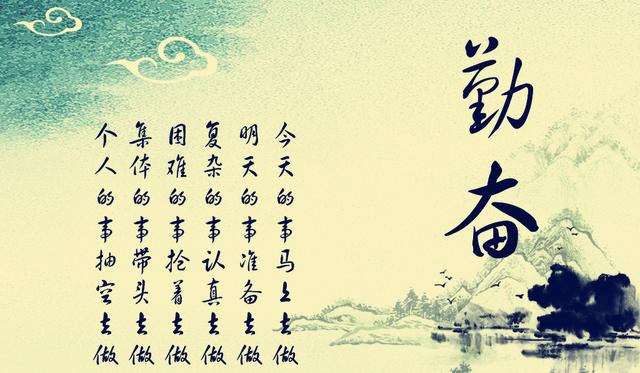 勤奋
今天的事马上去做
明天的事准备去做
复杂的事认真去做
困难的事抢着去做
集体的事带头去做
个人的事抽空去做